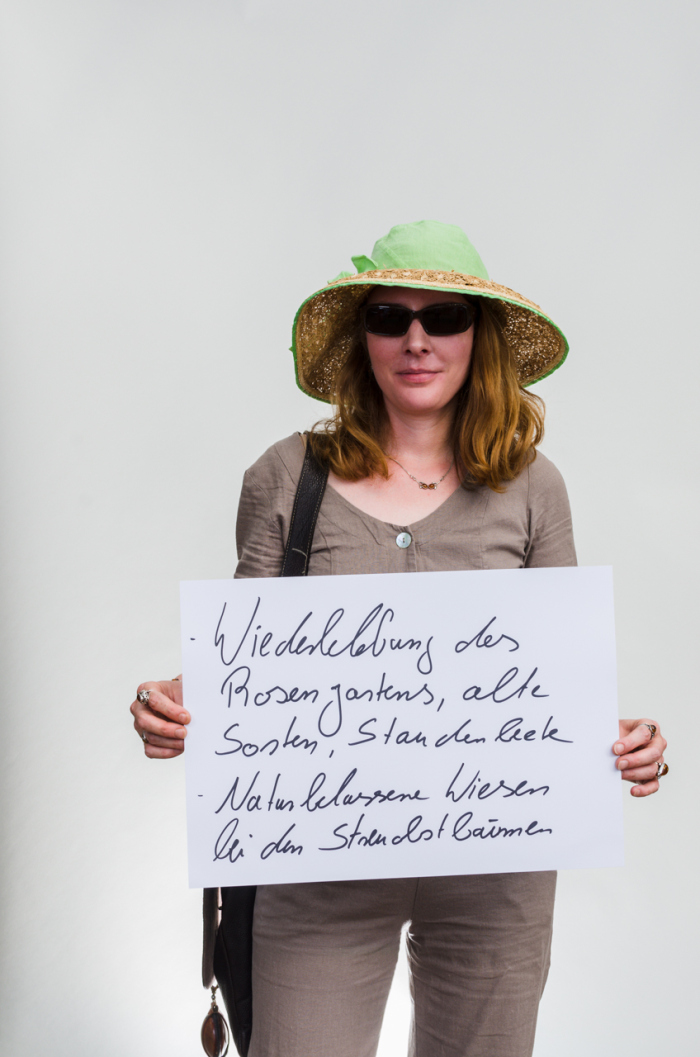 - Wiederbelebung des
Rosengartens, alte
Sorten, Staudenbeete
- Naturbelassene Wiesen
bei den Streuobstbäumen